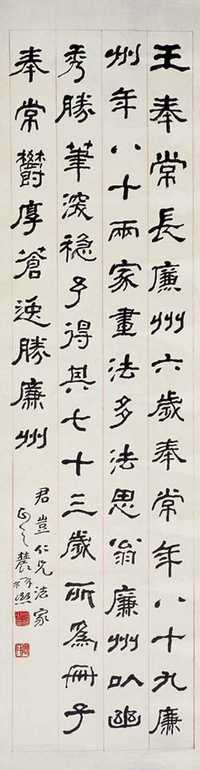 王奉常長廉州六歲奉常年八十九廉
州年八十兩家畫法多法思翁廉州以幽
秀勝筆深穩予得其七十三歲所爲冊子
奉常欝厚蒼逸勝廉州
君豈仁兄法家
正之